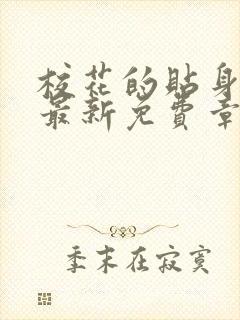 校花的贴身
最新免费章
季末在寂寞